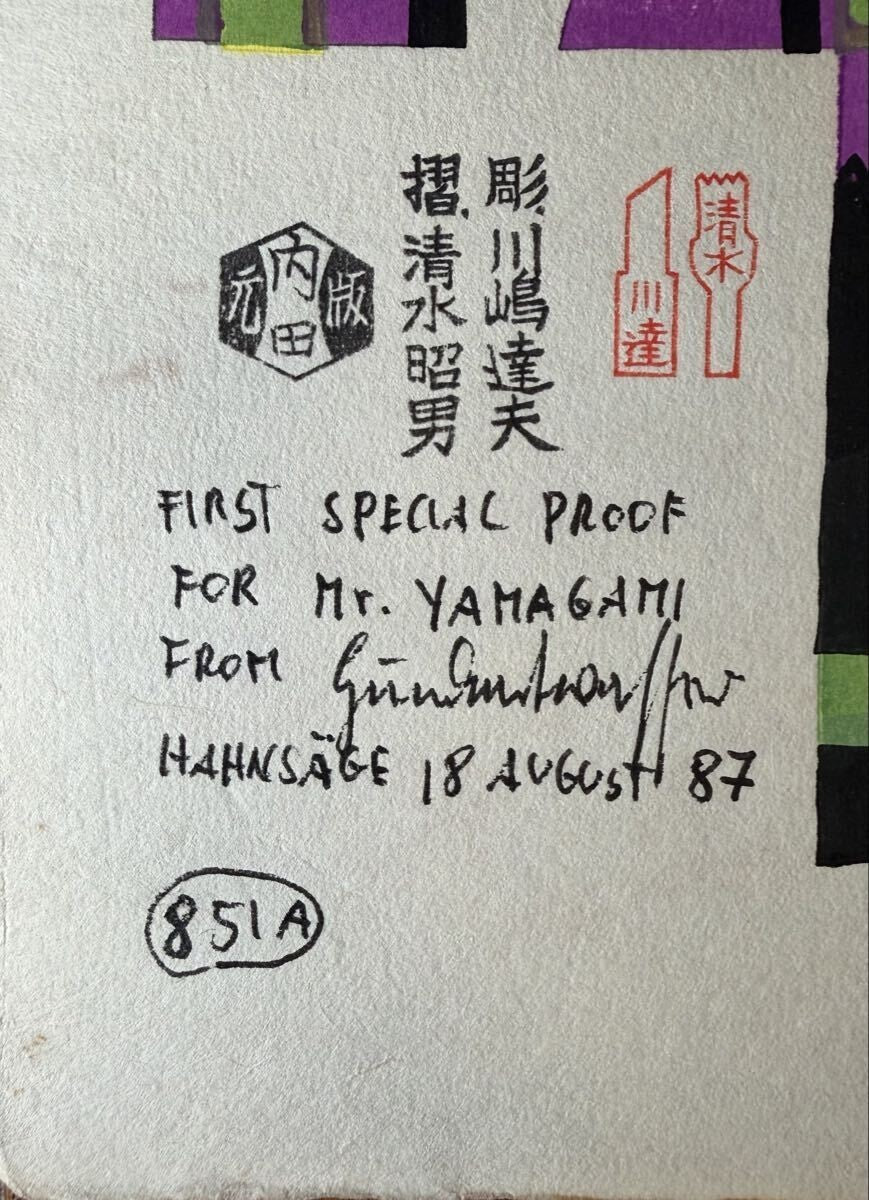 彫、川嶋達夫
摺、清水昭男
清水
川達
版元
内田
FIRST SPECIAL PROOF
FOR Mr. YAMAGAMI
FROM Hundertwasser
HAHNSÄGE 18 AUGUST 87
851A